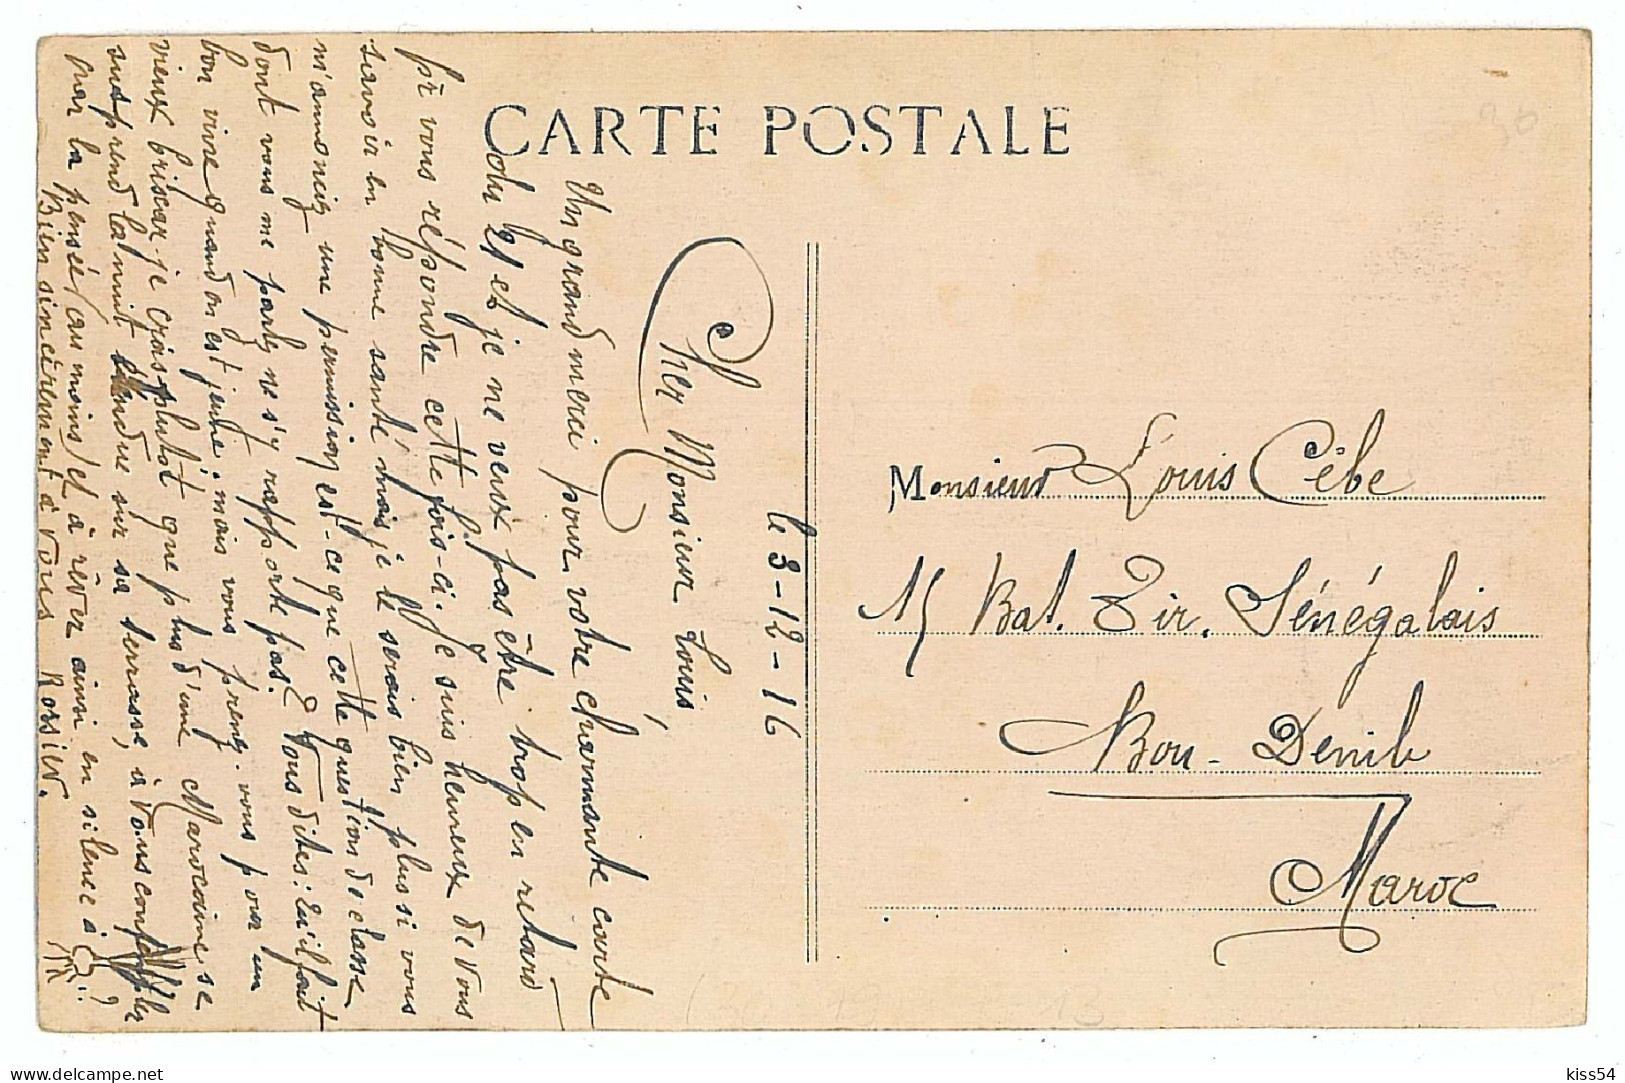 CARTE POSTALE
le 3-12-16
Cher Monsieur Louis
Un grand merci pour votre charmante carte
du 25 et je ne veux pas être trop en retard
pr vous répondre cette fois-ci. Je suis heureux de vous
savoir en bonne santé mais je le serais bien plus si vous
m'annonciez une permission est-ce que cette question de classe
dont vous me parlez ne s'y rapporte pas. Et vous dites: Qu'il faut
bon vivre quand on est jeune. mais vous prenez-vous pour un
vieux briscar je crois plutôt que plus d'une Marocaine se
surprend la nuit étendue sur sa terrasse, à vous contempler
par la pensée (au moins) et à rêver ainsi en silence à
!! ?
Bien sincèrement à vous Rossier.
Monsieur Louis Cèbe
15 Bat. Tir. Sénégalais
Bou-Denib
Maroc
30
kiss54